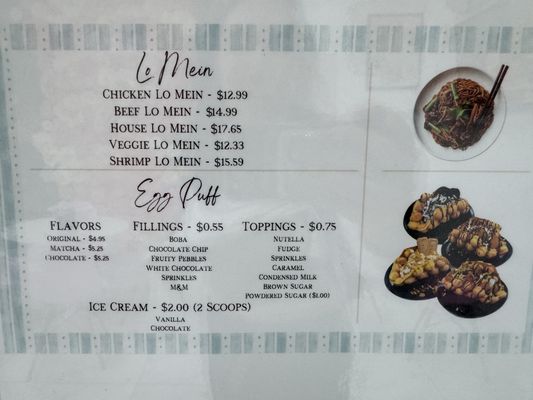 Lo Mein
Chicken Lo Mein - $12.99
Beef Lo Mein - $14.99
House Lo Mein - $17.65
Veggie Lo Mein - $12.33
Shrimp Lo Mein - $15.59
Egg Puff
Flavors
Original - $4.95
Matcha - $5.25
Chocolate - $5.25
Fillings - $0.55
Boba
Chocolate Chip
Fruity Pebbles
White Chocolate
Sprinkles
M&M
Toppings - $0.75
Nutella
Fudge
Sprinkles
Caramel
Condensed Milk
Brown Sugar
Powdered Sugar ($1.00)
Ice Cream - $2.00 (2 Scoops)
Vanilla
Chocolate